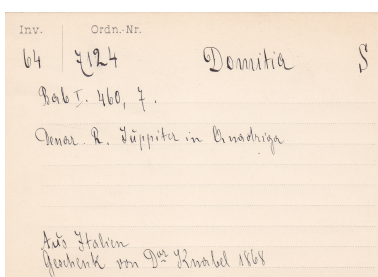 Inv. Ordn.-Nr.
64 7124 Domitia S
Bab I. 460, 7.
Denar. R. Juppiter in Quadriga
Aus Italien
Geschenk von Dr Knabel 1868